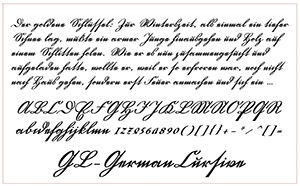 Der goldene Schlüssel: Zur Winterszeit, als einmal ein tiefer
Schnee lag, mußte ein armer Junge hinausgehen und Holz auf
einem Schlitten holen. Wie er es nun zusammengesucht und
aufgeladen hatte, wollte er, weil er so erfroren war, noch nicht
nach Haus gehen, sondern erst Feuer anmachen und sich ein ...
ABCDEFGHIJKLMNOPQR
abcdefghijklmn 1234567890()[]{}+-"/^[]=
GL-GermanCursive